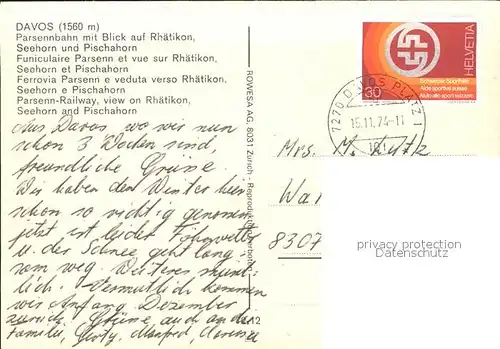 DAVOS (1560 m)
Parsennbahn mit Blick auf Rhätikon,
Seehorn und Pischahorn
Funiculaire Parsenn et vue sur Rhätikon,
Seehorn et Pischahorn
Ferrovia Parsenn e veduta verso Rhätikon,
Seehorn e Pischahorn
Parsenn-Railway, view on Rhätikon,
Seehorn and Pischahorn
Aus Davos, wo wir nun
schon 3 Wochen sind,
freundliche Grüsse.
Wir haben den Winter hier
schon so richtig genossen,
jetzt ist leider Föhnwetter
u. der Schnee geht lang-
sam weg. Weiteres münd-
lich. Vermutlich kommen
wir Anfang Dezember
zurück. Grüsse, auch an die
Familie, Manfred,
ROWESA AG, 8031 Zürich
HELVETIA
30
Schweizer Sporthilfe
Aide sportive suisse
Aiuto allo sport svizzero
7270 DAVOS PLATZ 1
15.11.74-11
Mrs. M.
8307
privacy protection
Datenschutz